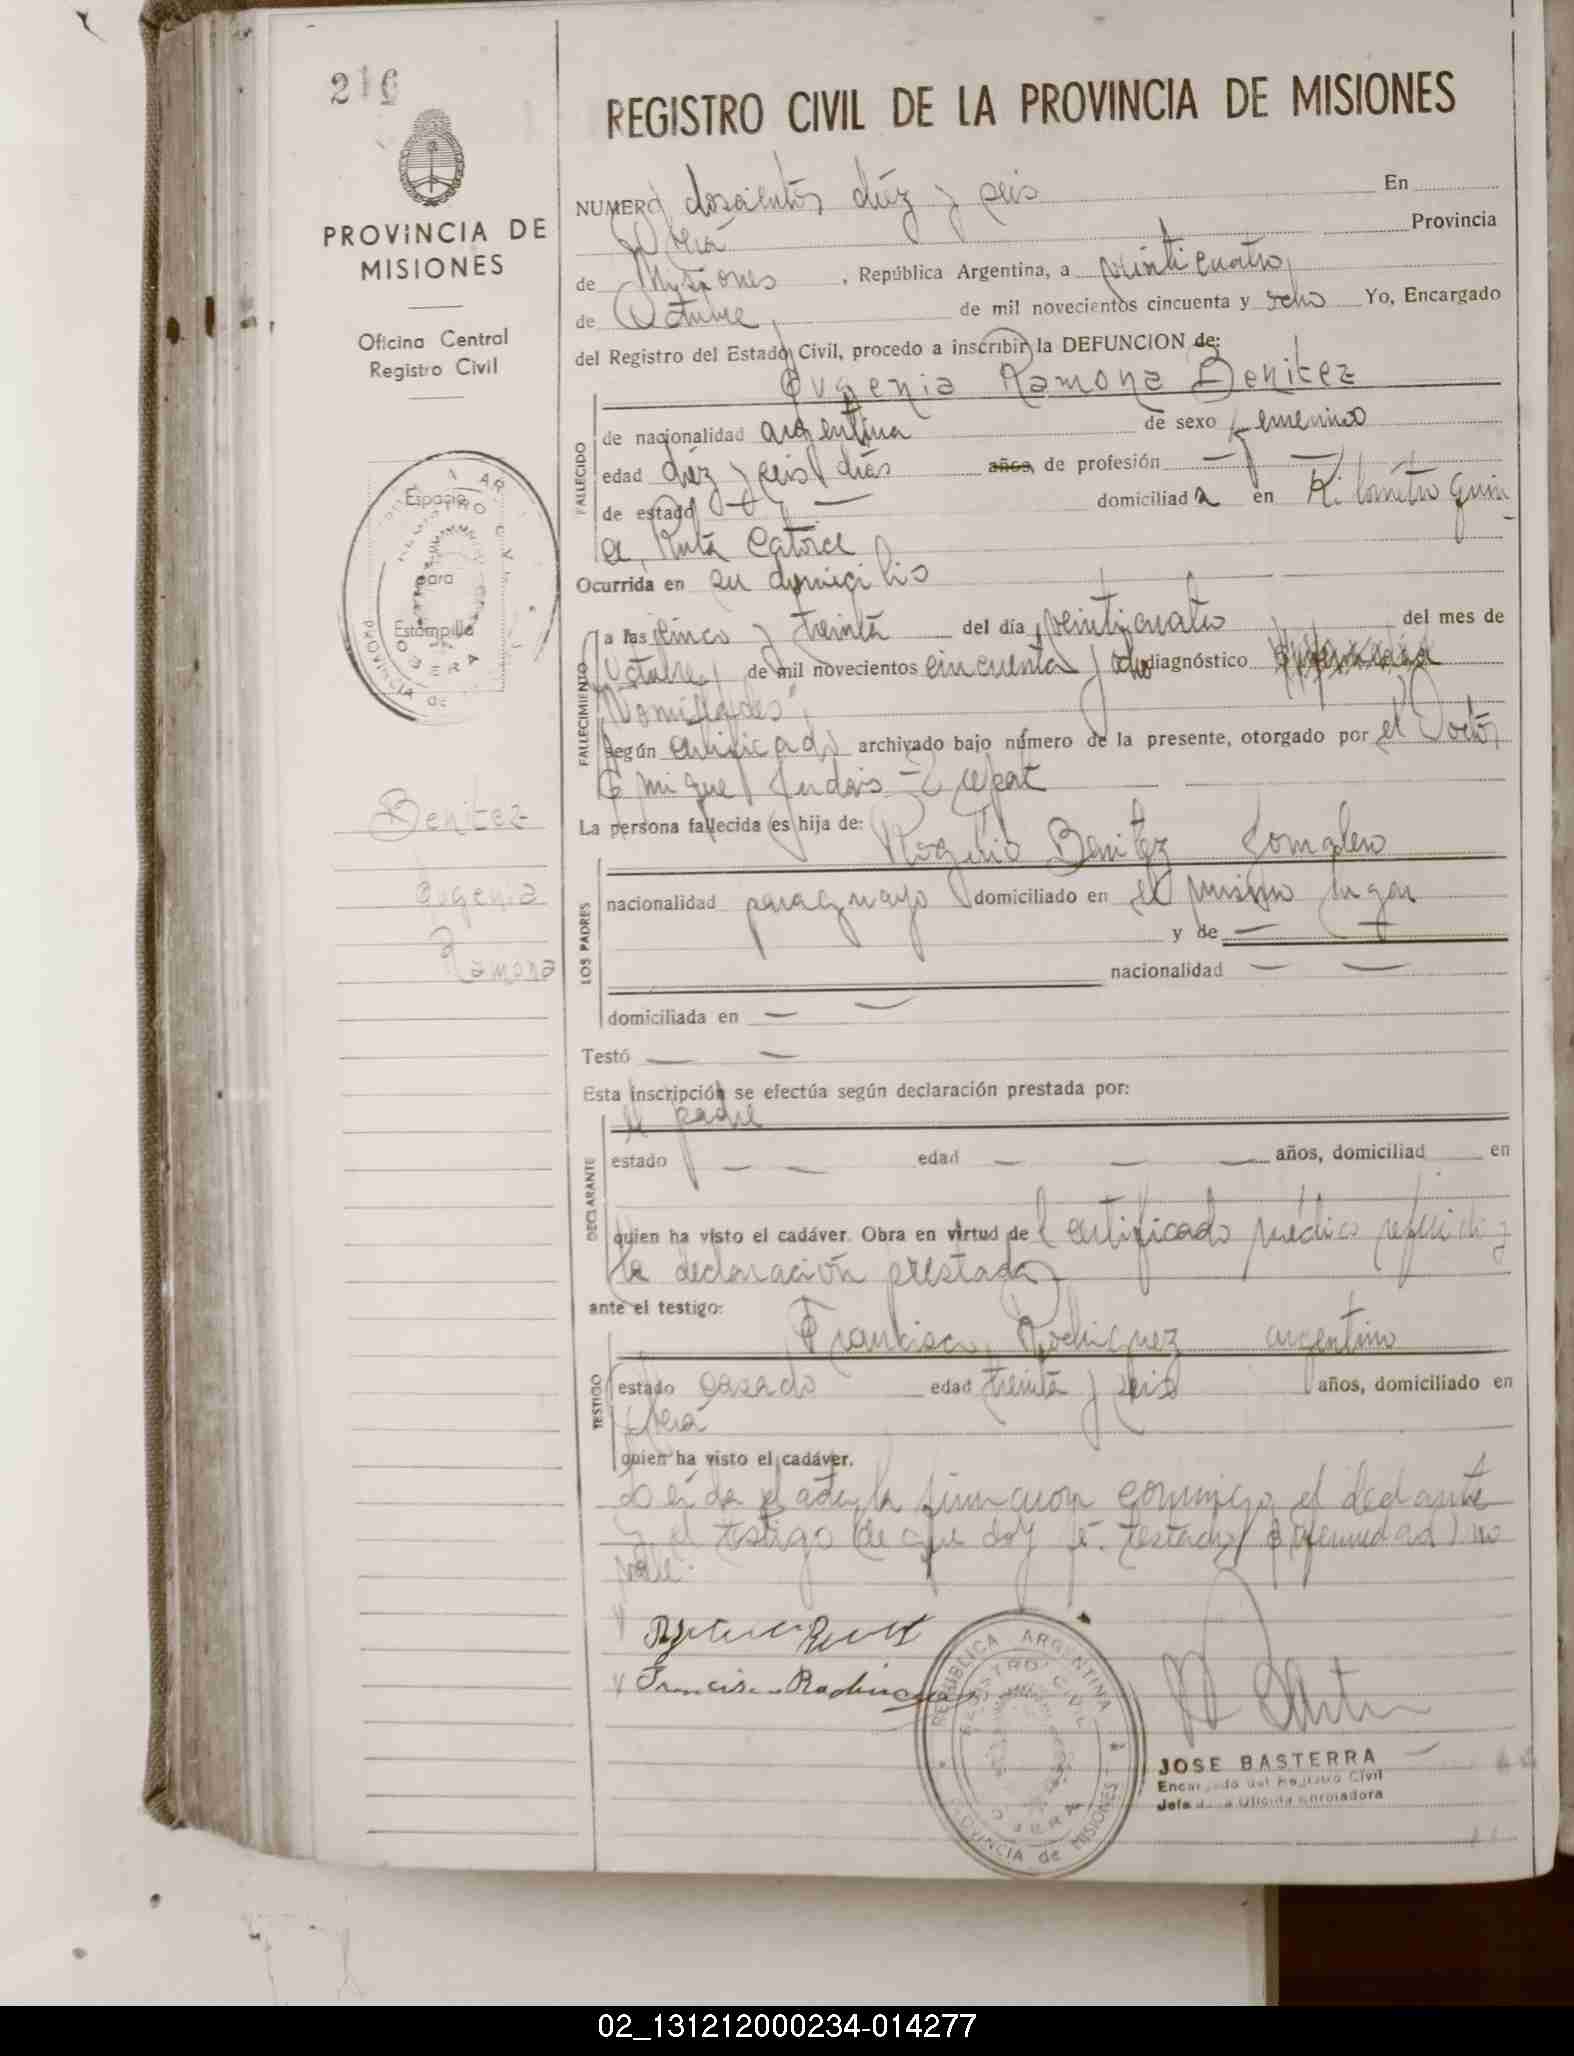 216
PROVINCIA DE
MISIONES
Oficina Central
Registro Civil
Espacio
para
Estampilla
Benitez
Eugenia
Ramona
REGISTRO CIVIL DE LA PROVINCIA DE MISIONES
NUMERO doscientos diéz y seis En
Oberá Provincia
de Misiones, República Argentina, a veinticuatro
de Octubre, de mil novecientos cincuenta y ocho Yo, Encargado
del Registro del Estado Civil, procedo a inscribir la DEFUNCION de:
Eugenia Ramona Benitez
FALLECIDO
de nacionalidad argentina de sexo femenino
edad diéz y seis días años, de profesión — —
de estado — — domiciliada en Kilómetro quin
ce, Ruta Catorce
Ocurrida en su domicilio
FALLECIMIENTO
a las cinco y treinta del día veinticuatro del mes de
Octubre, de mil novecientos cincuenta y ocho diagnóstico
según certificado archivado bajo número de la presente, otorgado por el Doctor
La persona fallecida es hija de:
Rogelio Benitez
LOS PADRES
nacionalidad paraguayo domiciliado en el mismo lugar
y de — —
nacionalidad — —
domiciliada en — —
Testó — —
Esta inscripción se efectúa según declaración prestada por:
el padre
DECLARANTE
estado — — edad — — — años, domiciliad en
quien ha visto el cadáver. Obra en virtud del certificado médico referido y
la declaración prestada
ante el testigo:
Francisco Rodriguez argentino
TESTIGO
estado casado edad treinta y seis años, domiciliado en
Oberá
quien ha visto el cadáver.
Leída el acta, la firman conmigo el declarante
y el testigo de que doy fé. Testado: no
vale.
Francisco Rodriguez
REPUBLICA ARGENTINA
REGISTRO CIVIL
OBERA
PROVINCIA de MISIONES
JOSE BASTERRA
Encargado del Registro Civil
Jefe de la Oficina Enroladora
02_131212000234-014277